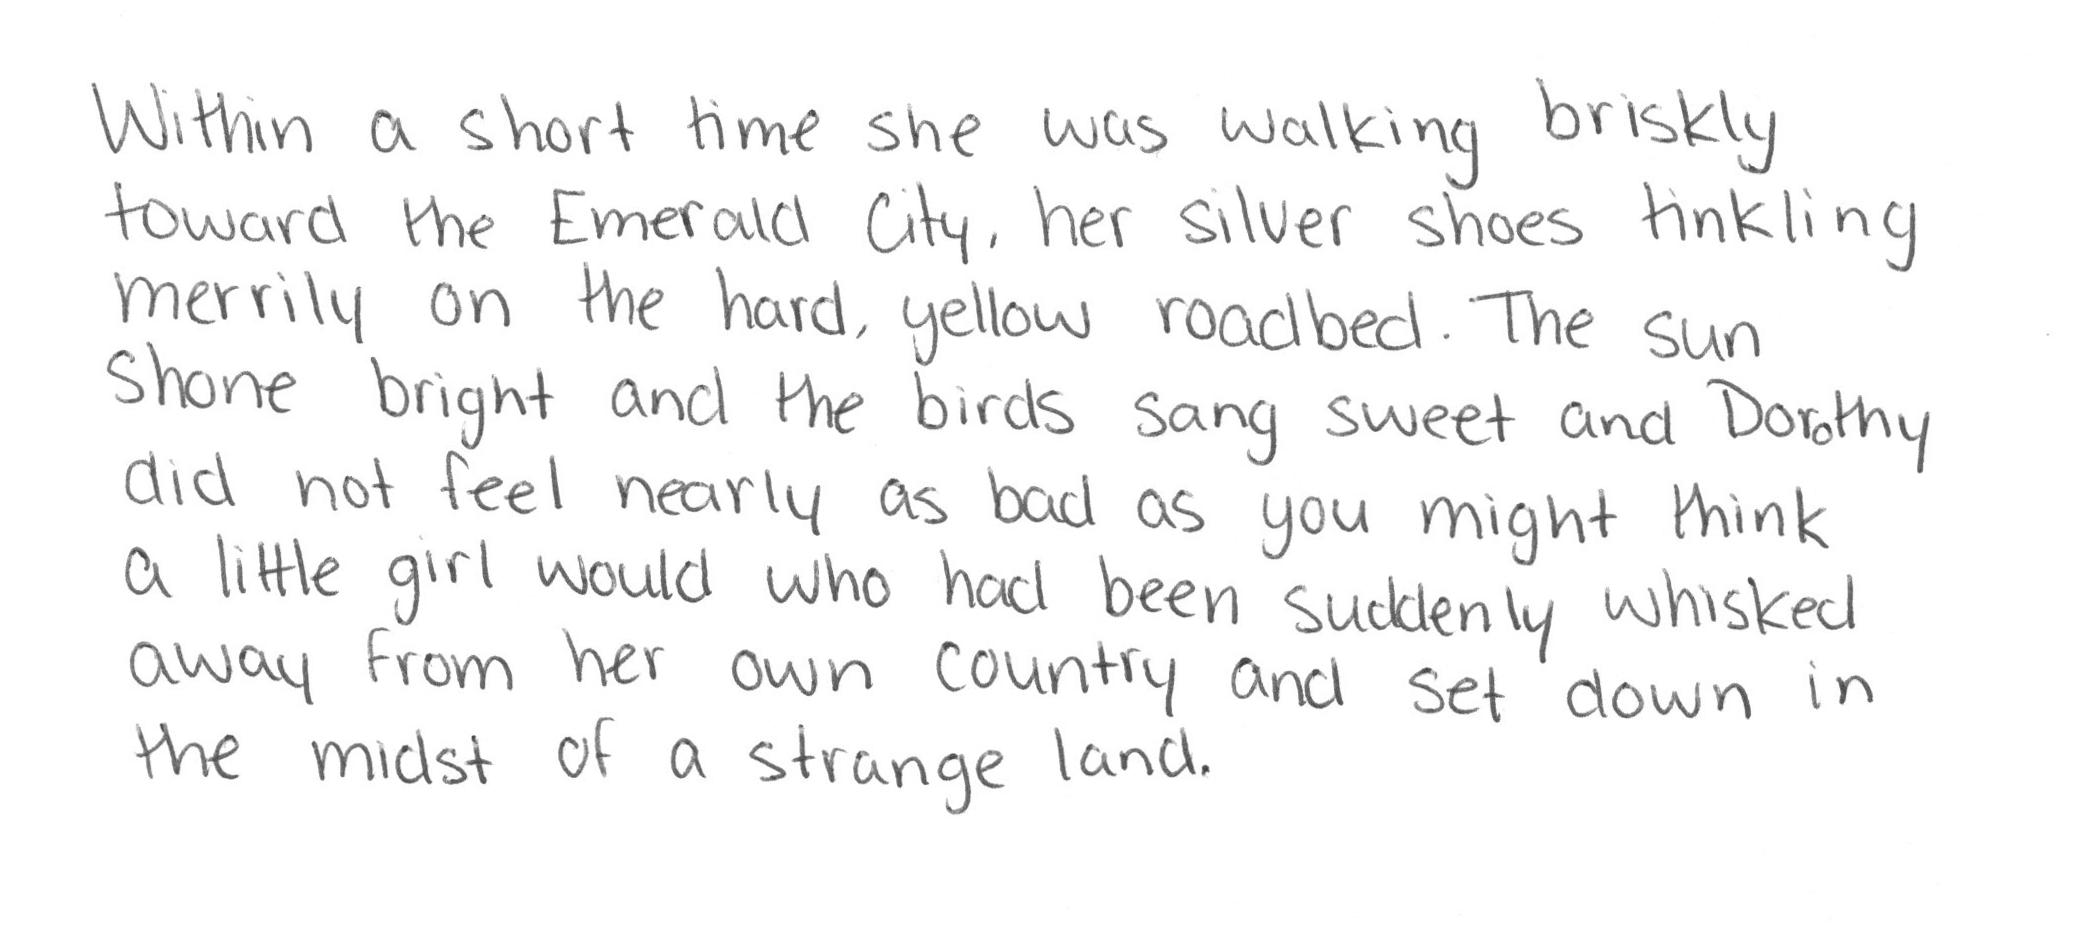 Within a short time she was walking briskly
toward the Emerald City, her silver shoes tinkling
merrily on the hard, yellow roadbed. The sun
shone bright and the birds sang sweet and Dorothy
did not feel nearly as bad as you might think
a little girl would who had been suddenly whisked
away from her own country and set down in
the midst of a strange land.